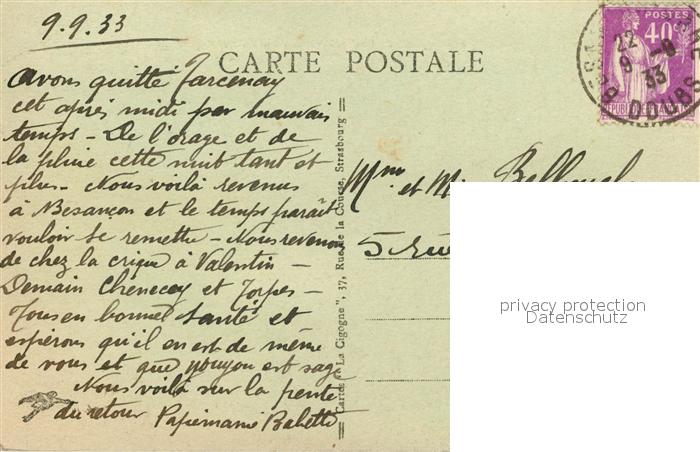 9.9.33
CARTE POSTALE
POSTES
40c
22
9 - 9
33
DOUBS
Avons quitté Tarcenay
cet après midi par mauvais
temps - De l'orage et de
la pluie cette nuit tant et
plus - Nous voilà revenus
à Besançon et le temps paraît
vouloir se remettre - Nous revenons
de chez la crique à Valentin -
Demain Chenecey et Torpes -
Tous en bonne santé et
espérons qu'il en est de même
de vous et que youyou est sage
Nous voilà sur la pente
du retour Papiemamie Babette
Cartes "La Cigogne", 37, Rue de la Course, Strasbourg
Mme et M.
5 rue
privacy protection
Datenschutz